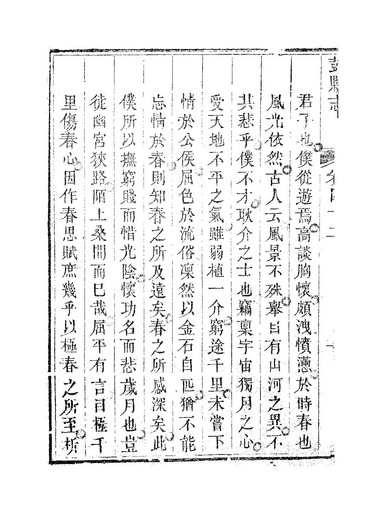 彭縣志
君子也僕從遊焉高談胸懷頗洩憤懣於時春也
風光依然古人云風景不殊舉目有山河之異不
其悲乎僕不才耿介之士也竊稟宇宙獨用之心
受天地不平之氣雖弱植一介窮途千里未嘗下
情於公侯屈色於流俗凜然以金石自匹猶不能
忘情於春則知春之所及遠矣春之所感深矣此
僕所以撫窮賤而惜光陰懷功名而悲歲月也豈
徒幽宮狹路陌上桑間而已哉屈平有言目極千
里傷春心因作春思賦庶幾乎以極春之所至析